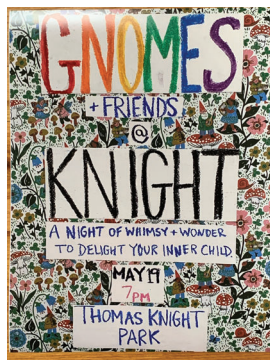 GNOMES
+ FRIENDS
@
KNIGHT
A NIGHT OF WHIMSY + WONDER
TO DELIGHT YOUR INNER CHILD.
MAY 19
7PM
THOMAS KNIGHT
PARK